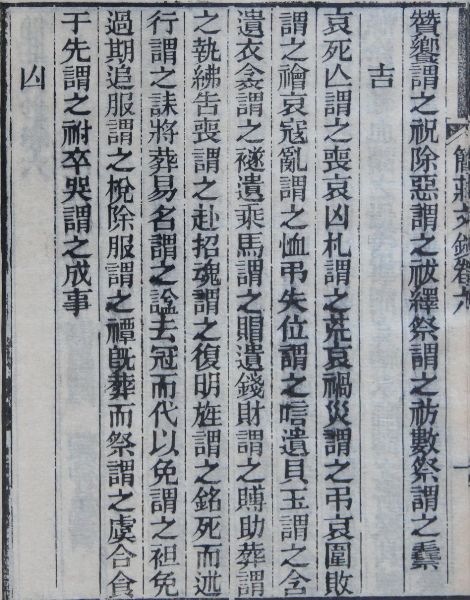 簡莊文鈔卷六
贊饗謂之祝除惡謂之祓繹祭謂之祊數祭謂之
吉
哀死亾謂之喪哀凶札謂之荒哀禍災謂之弔哀圍敗
謂之禬哀寇亂謂之恤弔失位謂之唁遺貝玉謂之含
遺衣衾謂之禭遺乘馬謂之賵遺錢財謂之賻助葬謂
之執紼告喪謂之赴招魂謂之復明旌謂之銘死而述
行謂之誄將葬易名謂之諡去冠而代以免謂之袒免
過期追服謂之梲除服謂之禫既葬而祭謂之虞合食
于先謂之祔卒哭謂之成事
凶